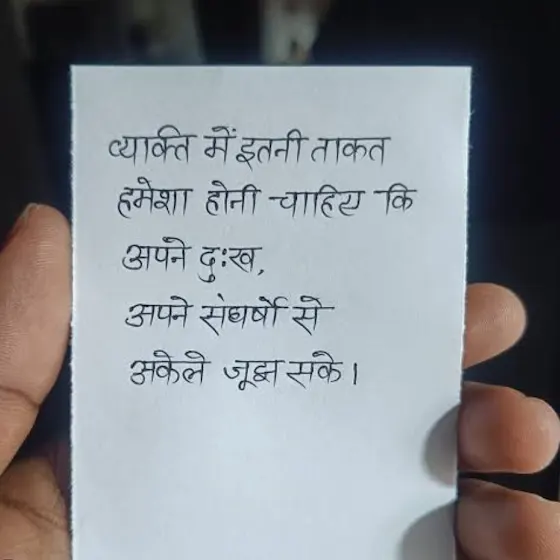 व्यक्ति में इतनी ताकत
हमेशा होनी चाहिए कि
अपने दुःख,
अपने संघर्षो से
अकेले जूझ सके।